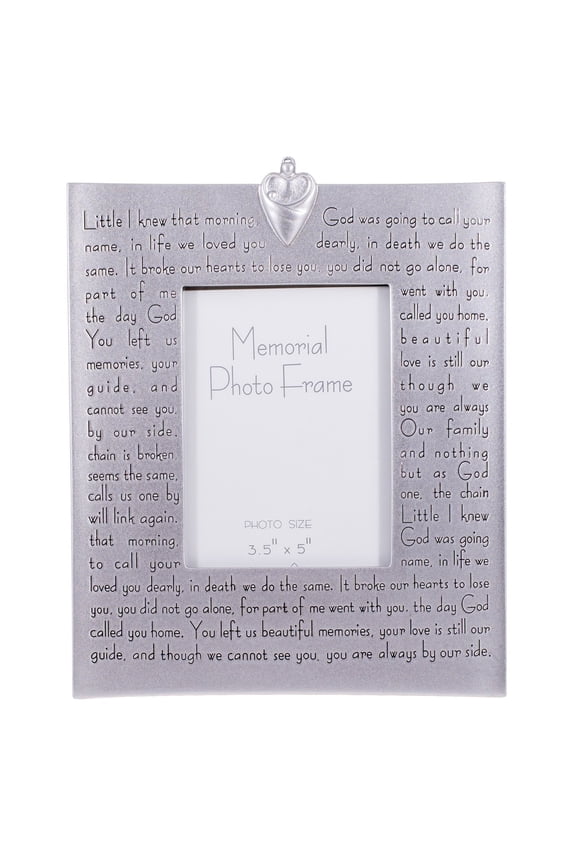 Little I knew that morning, God was going to call your
name, in life we loved you dearly, in death we do the
same. It broke our hearts to lose you, you did not go alone, for
part of me went with you,
the day God called you home,
You left us beautiful
memories, your love is still our
guide, and though we
cannot see you, you are always
by our side. Our family
chain is broken, and nothing
seems the same, but as God
calls us one by one, the chain
will link again. Little I knew
that morning, God was going
to call your name, in life we
loved you dearly, in death we do the same. It broke our hearts to lose
you, you did not go alone, for part of me went with you, the day God
called you home. You left us beautiful memories, your love is still our
guide, and though we cannot see you, you are always by our side.
Memorial
Photo Frame
PHOTO SIZE
3.5" x 5"